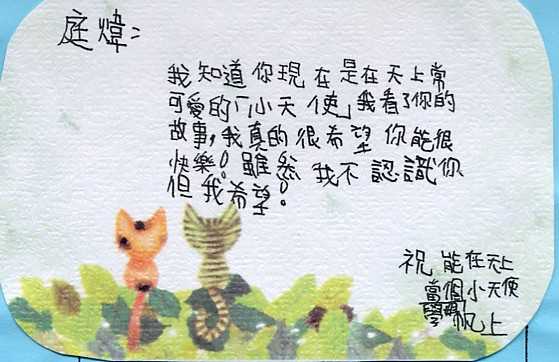 庭煒:
我知道你現在是在天上常
可愛的「小天使」我看了你的
故事,我真的很希望你能很
快樂!雖然我不認識你
但我希望!
祝能在天上
當個小天使
帆上